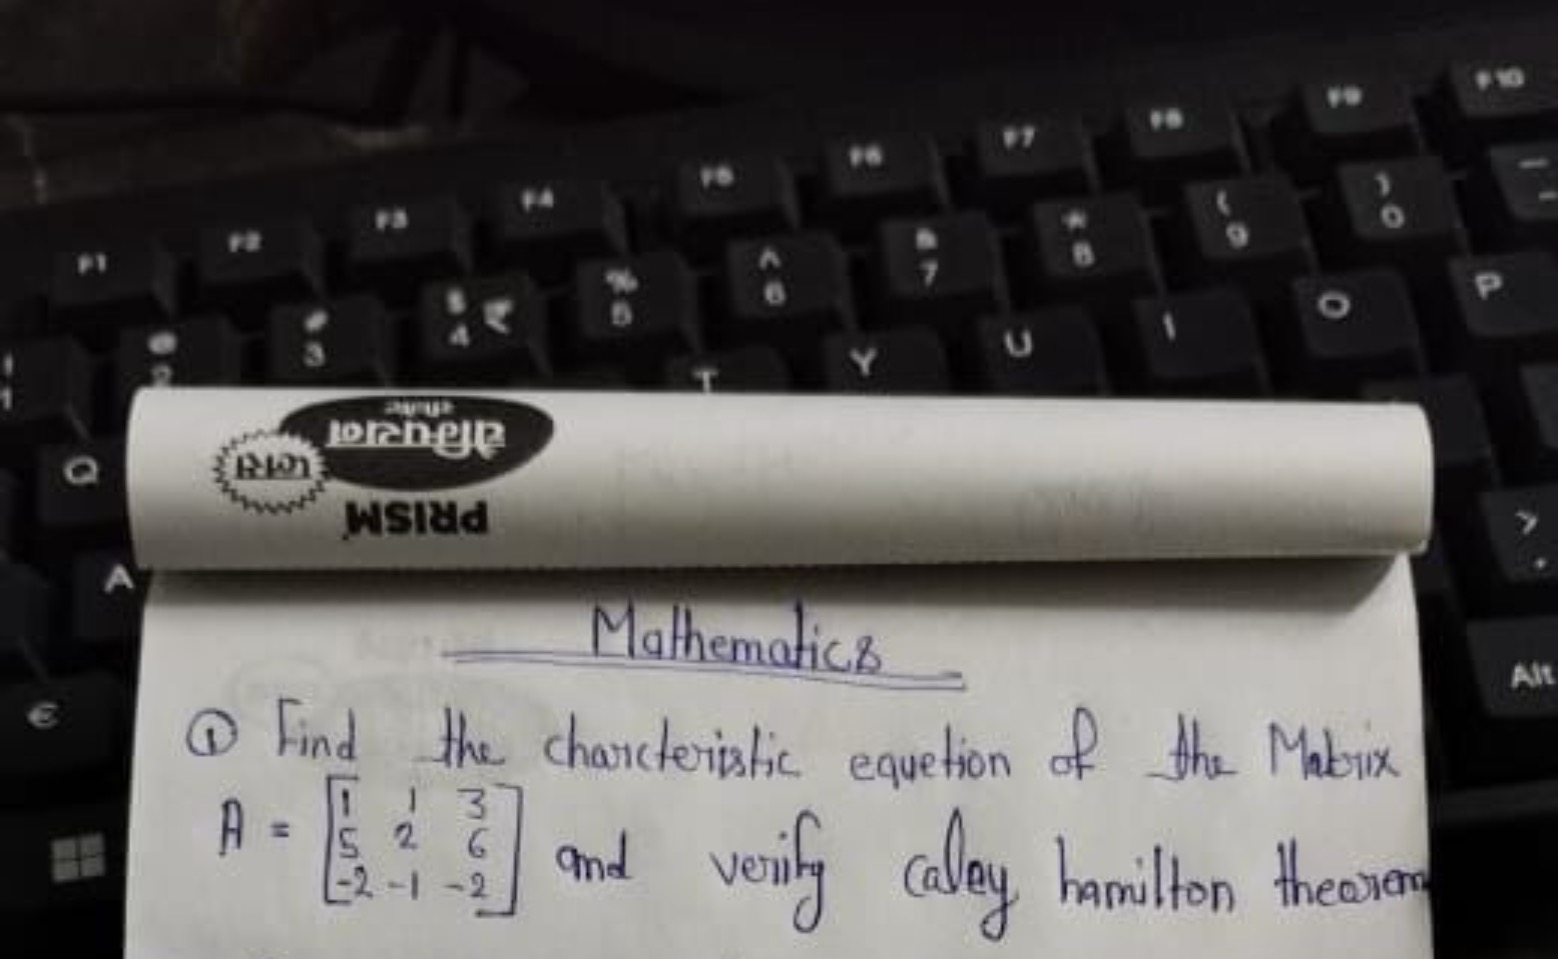 F1 F2 F3 F4 F5 F6 F7 F8 F9 F10
! 1 @ 2 # 3 $ 4 ₹ % 5 ^ 6 & 7 * 8 ( 9 ) 0 _ -
Q T Y U I O P
A > .
€ Alt
PRISM
प्लस
Mathematics
① Find the charcteristic equetion of the Matrix
A = [1 1 3
5 2 6
-2 -1 -2] and verify caley hamilton theorem